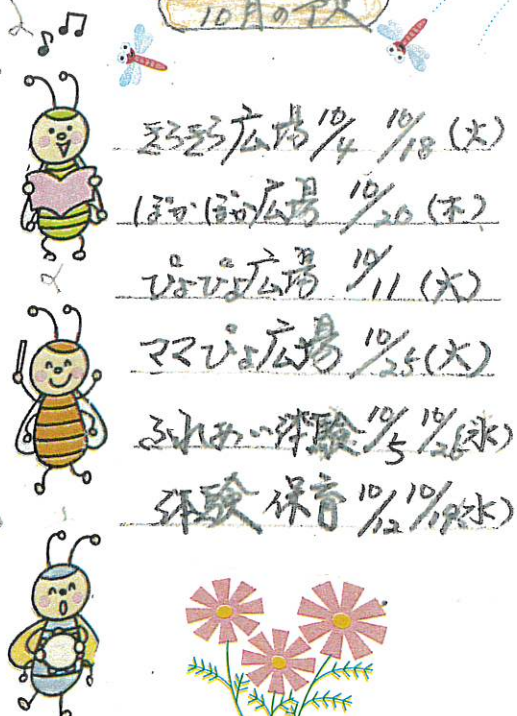 10月の予定
そろそろ広場 10/4 10/18 (火)
ぽかぽか広場 10/20 (木)
ぴよぴよ広場 10/11 (火)
ママぴよ広場 10/25 (火)
ふれあい体験 10/5 10/26 (水)
体験保育 10/12 10/19 (水)